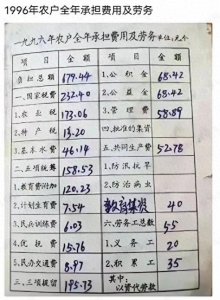 1996年农户全年承担费用及劳务
一九九六年农户全年承担费用及劳务 单位:元.个
项目 金额 项目 金额
负担总额 679.44 1.公积金 68.42
一.国家税费 232.40 2.公益金 68.42
1.农业税 173.06 3.管理费 58.89
2.特产税 13.20 四.批准的集资
3.基本水费 46.14 五.共同生产费 52.78
二.五项统筹 158.53 1.防汛抗旱
1.教育费附加 120.23 2.防治病虫
2.计划生育费 7.54 40
3.民兵训练费 6.03 六.劳务工总数 55
4.优抚费 15.76 1.义务工 20
5.民办交通费 8.97 2.积累工 35
三.三项提留 195.73 其中:以资代劳款